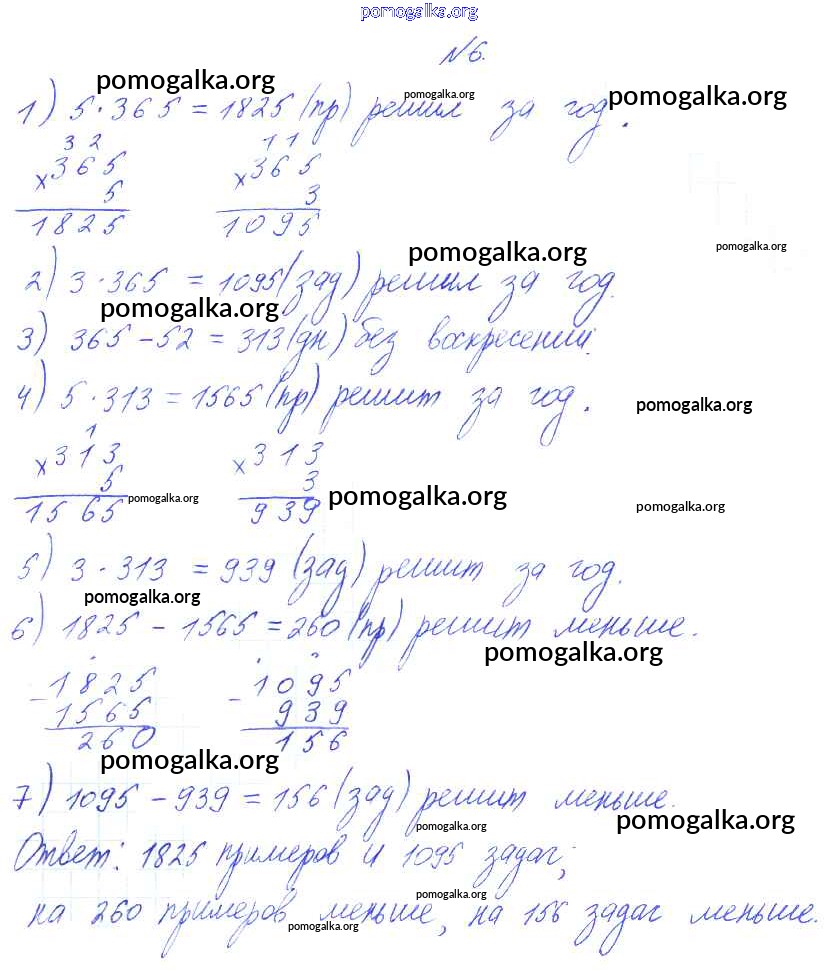 pomogalka.org
№6.
pomogalka.org pomogalka.org pomogalka.org
1) 5·365 = 1825 (пр) решил за год.
3 2 1 1
×365 ×365
5 3
1825 1095
pomogalka.org pomogalka.org
2) 3·365 = 1095 (зад) решил за год.
pomogalka.org
3) 365 - 52 = 313 (дн) без воскресений.
4) 5·313 = 1565 (пр) решит за год.
pomogalka.org
1
×313 ×313
5 3
pomogalka.org pomogalka.org pomogalka.org
1565 939
5) 3·313 = 939 (зад) решит за год.
pomogalka.org
6) 1825 - 1565 = 260 (пр) решит меньше.
pomogalka.org
-1825 -1095
1565 939
260 156
pomogalka.org
7) 1095 - 939 = 156 (зад) решит меньше.
pomogalka.org pomogalka.org
Ответ: 1825 примеров и 1095 задач;
pomogalka.org
на 260 примеров меньше, на 156 задач меньше.
pomogalka.org